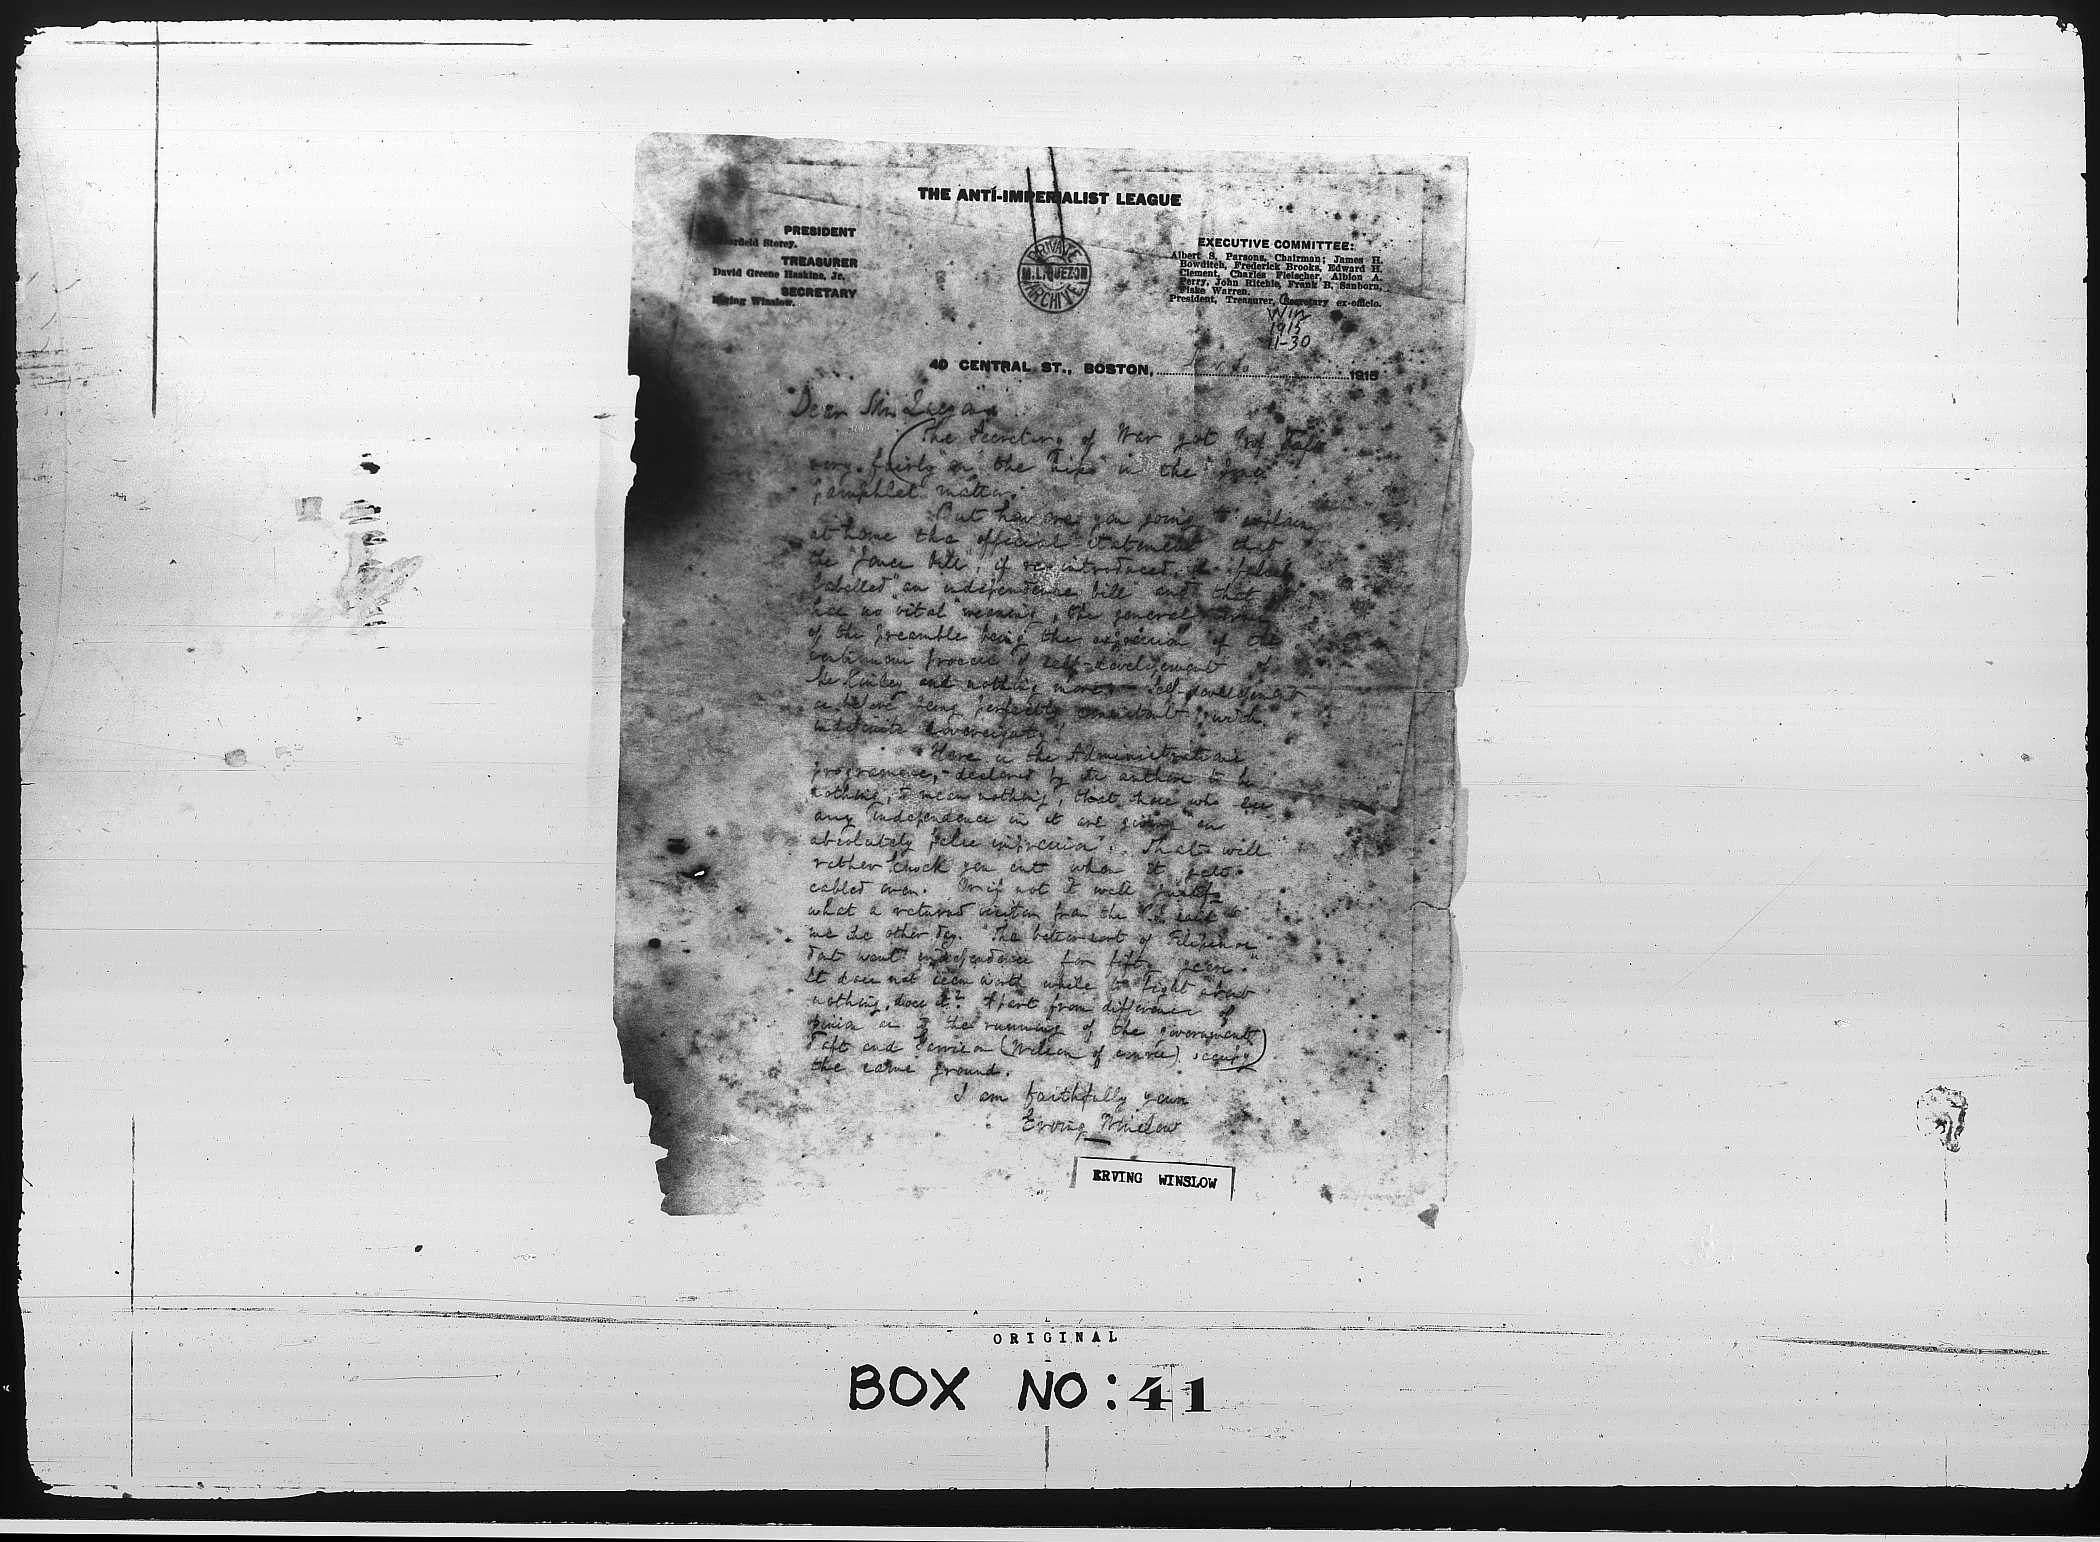 THE ANTI-IMPERIALIST LEAGUE
PRESIDENT
Storey.
TREASURER
David Greene Haskins, Jr.
SECRETARY
Erving Winslow.
PRIVATE
M.L. QUEZON
ARCHIVE
EXECUTIVE COMMITTEE:
Albert S. Parsons, Chairman; James H.
Bowditch, Frederick Brooks, Edward H.
Clement, Charles Fleischer, Albion A.
Perry, John Ritchie, Frank B. Sanborn,
Fiske Warren.
President, Treasurer, Secretary ex-officio.
Win
1915
1-30
40 CENTRAL ST., BOSTON, 1915
Dear Mr. Quezon
The Secretary of War got Prof. Taft
very fairly "on the hip" in the "Jones"
pamphlet matter.
But how are you going to explain
at home the official statement that
the "Jones bill", if re-introduced is falsely
labelled "an independence bill" and that it
has no vital meaning, the general
of the preamble being the expression of the
continuous process of self-development of
McKinley and nothing more. Self-development
as before being perfectly consistent with
indefinite sovereignty!
Here is the Administration's
programme,- declared by its authors to be
nothing, to mean nothing, that those who see
any independence in it are giving "an
absolutely false impression". That will
rather knock you out when it gets
cabled over. Or if not it will justify
what a returned visitor from the P.I. said to
me the other day. "The better sort of Filipinos
dont want independence for fifty years."
It does not seem worth while to fight about
nothing, does it? Apart from difference of
opinion as to the running of the government,
Taft and Garrison (Wilson of course) occupy
the same ground.
I am faithfully yours
Erving Winslow
ERVING WINSLOW
ORIGINAL
BOX NO: 41